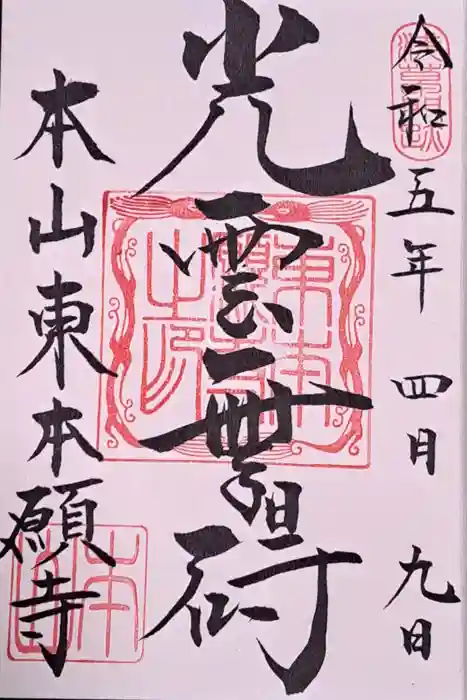 令和五年四月九日
光雲無碍
本山東本願寺
東本願寺之印